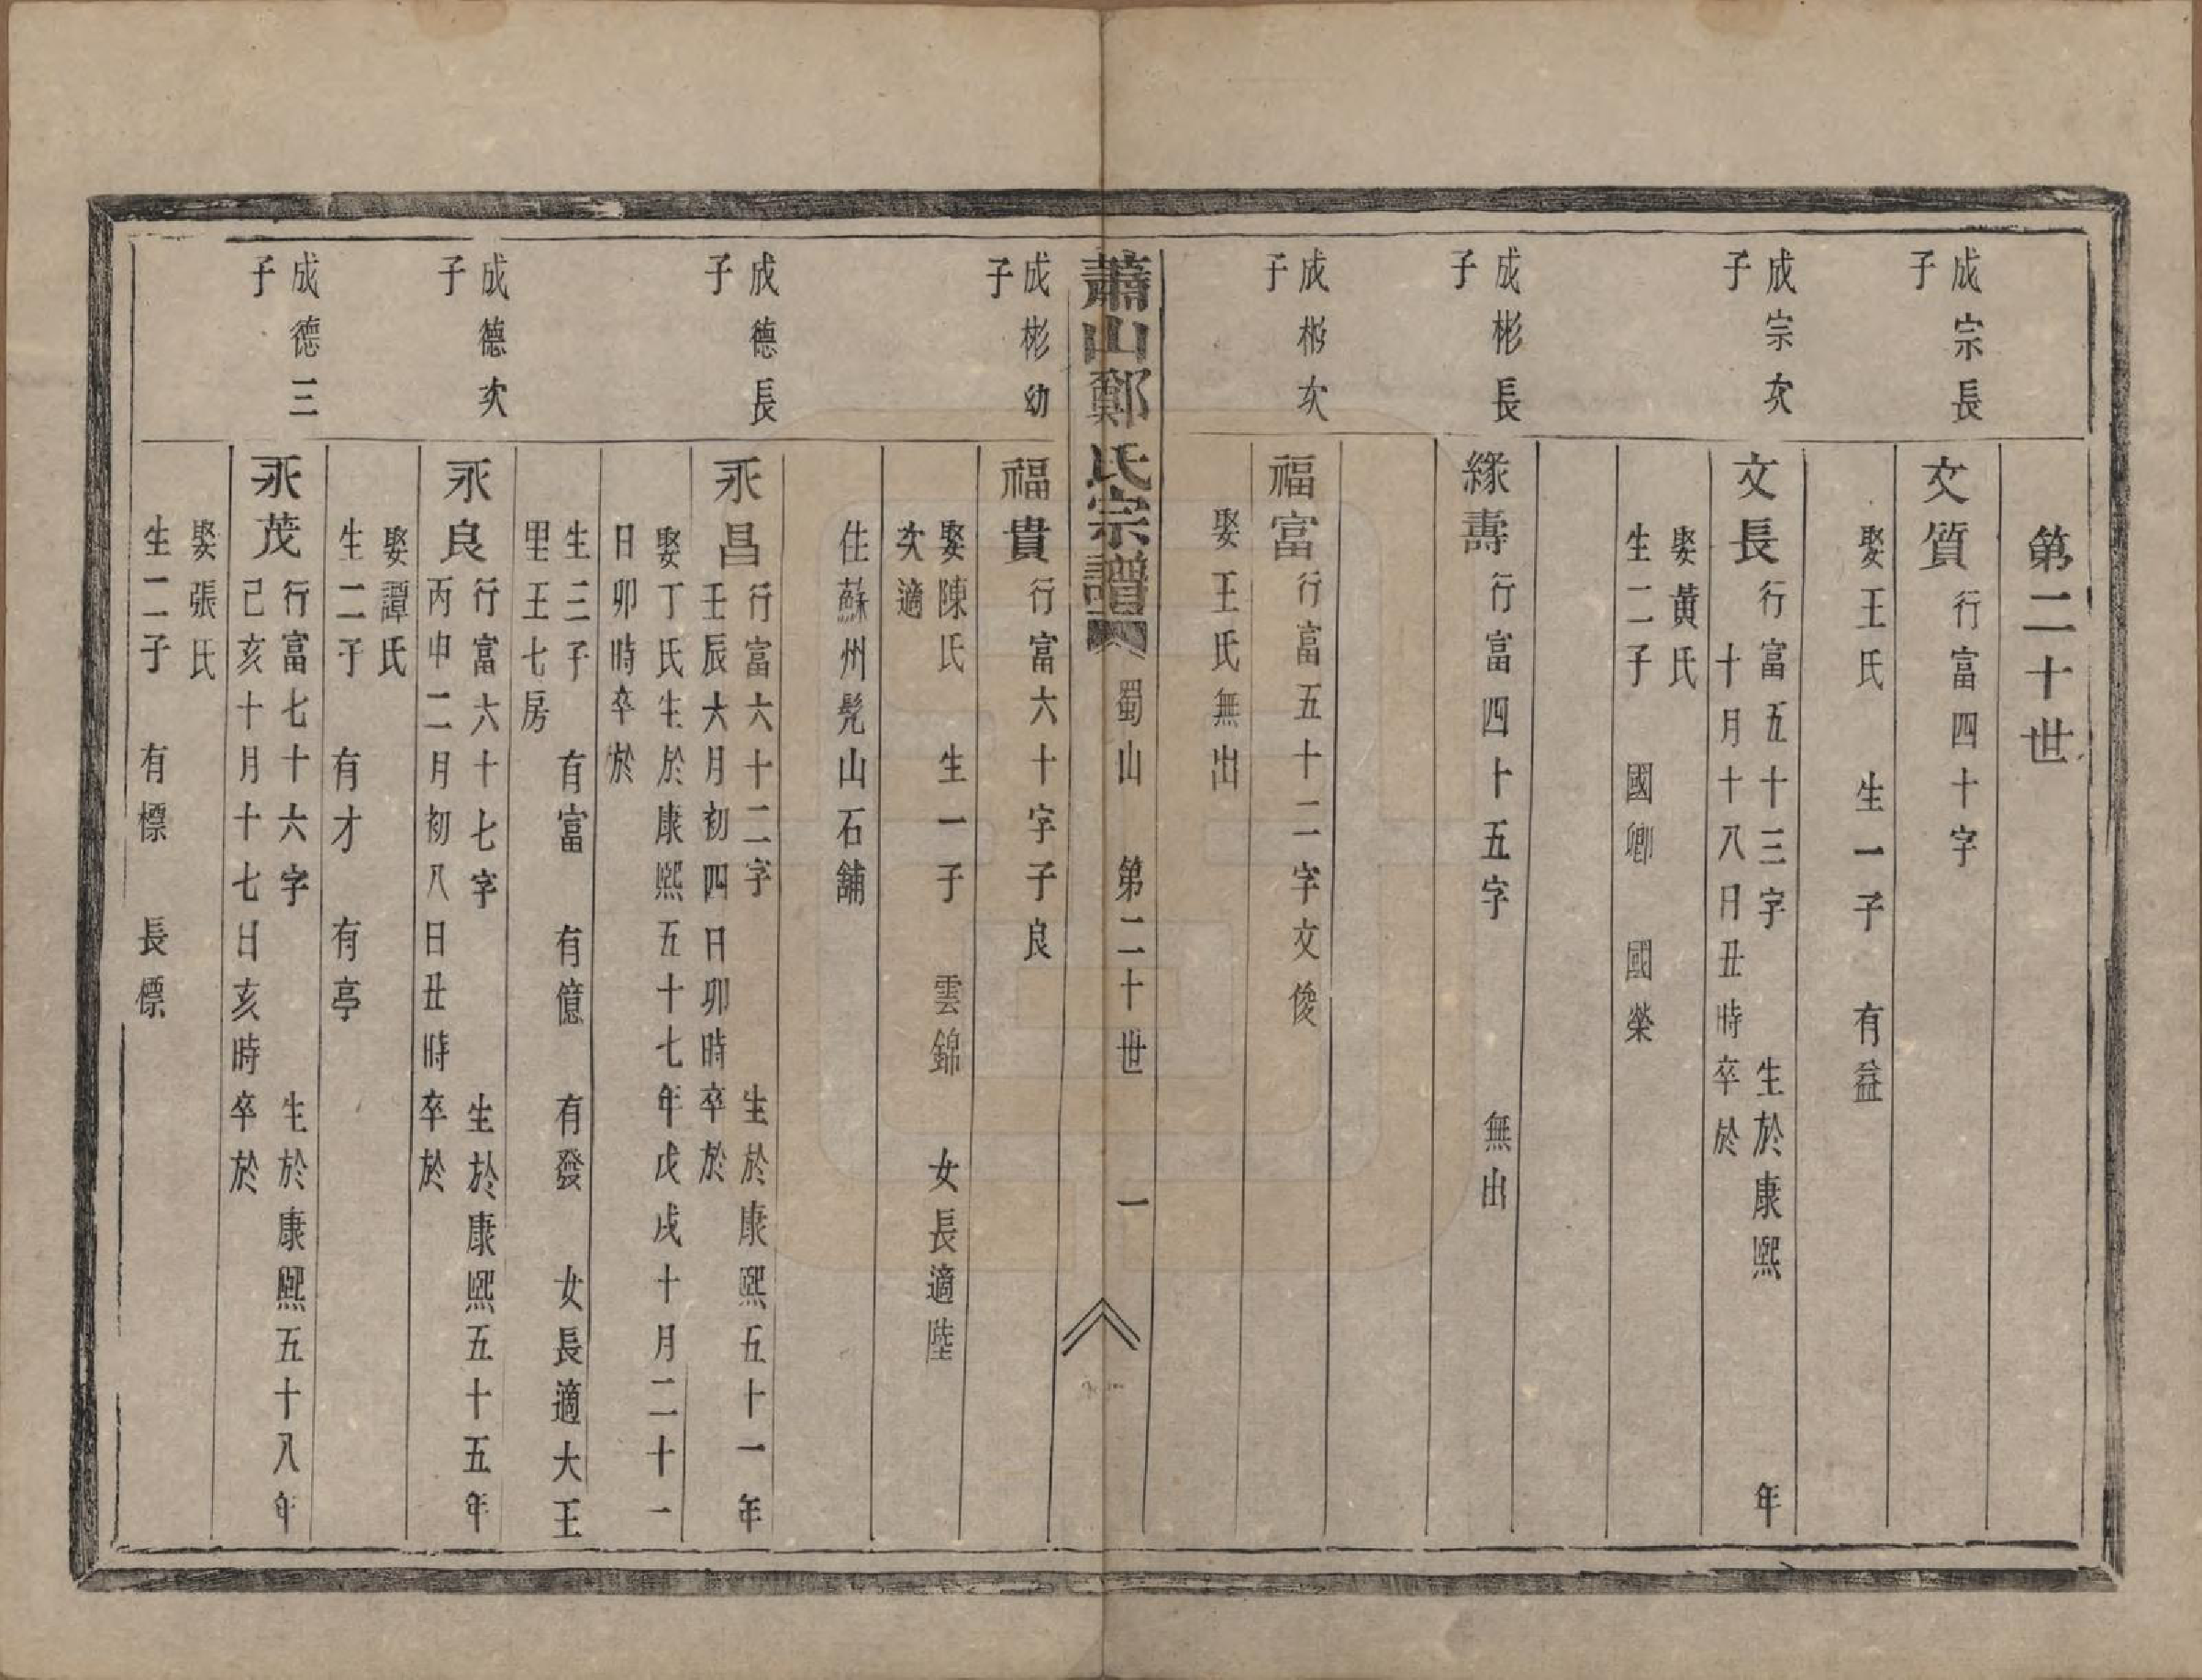 第二十世
成宗長子
文質行富四十字
娶王氏 生一子 有益
成宗次子
文長行富五十三字 生於康熙 年
十月十八日丑時卒於
娶黃氏
生二子 國卿 國榮
成彬長子
緣壽行富四十五字 無出
成彬次子
福富行富五十二字文俊
娶王氏無出
蕭山鄭氏宗譜 蜀山 第二十世 一
成彬幼子
福貴行富六十字子良
娶陳氏 生一子 雲錦 女長適陸
次適
住蘇州虎山石舖
成德長子
永昌行富六十二字 生於康熙五十一年
壬辰六月初四日卯時卒於
娶丁氏生於康熙五十七年戊戌十月二十一
日卯時卒於
生三子 有富 有億 有發 女長適大王
里王七房
成德次子
永良行富六十七字 生於康熙五十五年
丙申二月初八日丑時卒於
娶譚氏
生二子 有才 有亭
成德三子
永茂行富七十六字 生於康熙五十八年
己亥十月十七日亥時卒於
娶張氏
生二子 有標 長標